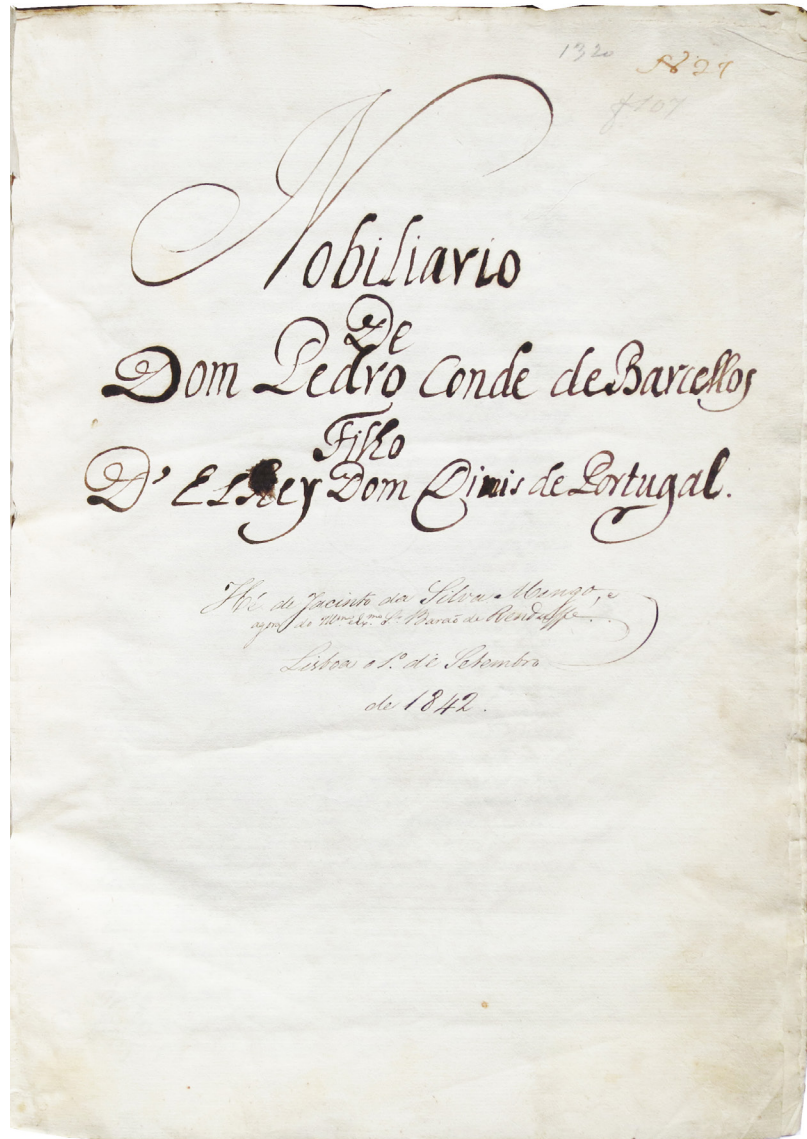 1320 Nº 27
Nobiliario
De
Dom Pedro Conde de Barcellos
Filho
D' ElRey Dom Dinis de Portugal.
Hé de Jacinto da Silva Mengo, e
agora do Illmo e Exmo Sr. Barão de Renduffe.
Lisboa o 1º de Setembro
de 1842.